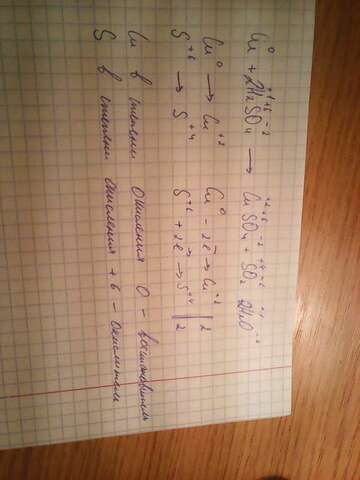 Cu⁰ + 2H₂⁺¹S⁺⁶O₄⁻² → Cu⁺²S⁺⁶O₄⁻² + S⁺⁴O₂⁻² 2H₂⁺¹O⁻²
Cu⁰ → Cu⁺² Cu⁰ - 2e̅ → Cu⁺² | 2
S⁺⁶ → S⁺⁴ S⁺⁶ + 2e̅ → S⁺⁴ | 2
Cu в степени окисления 0 - восстановитель
S в степени окисления +6 - окислитель